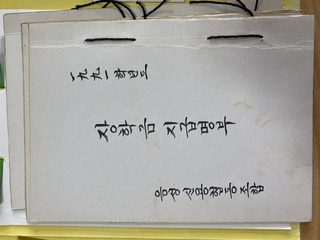 一九九一 학년도
장학금 지급명부
음성 신용협동조합